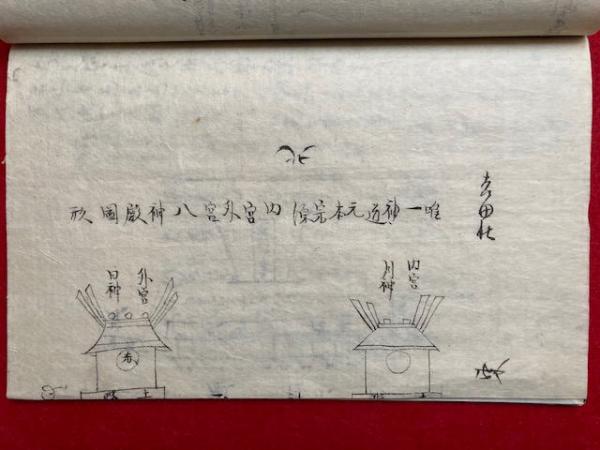 吉田社
北
唯一神道元本宗源内宮外宮八神殿圖形
内宮
月神
外宮
日神